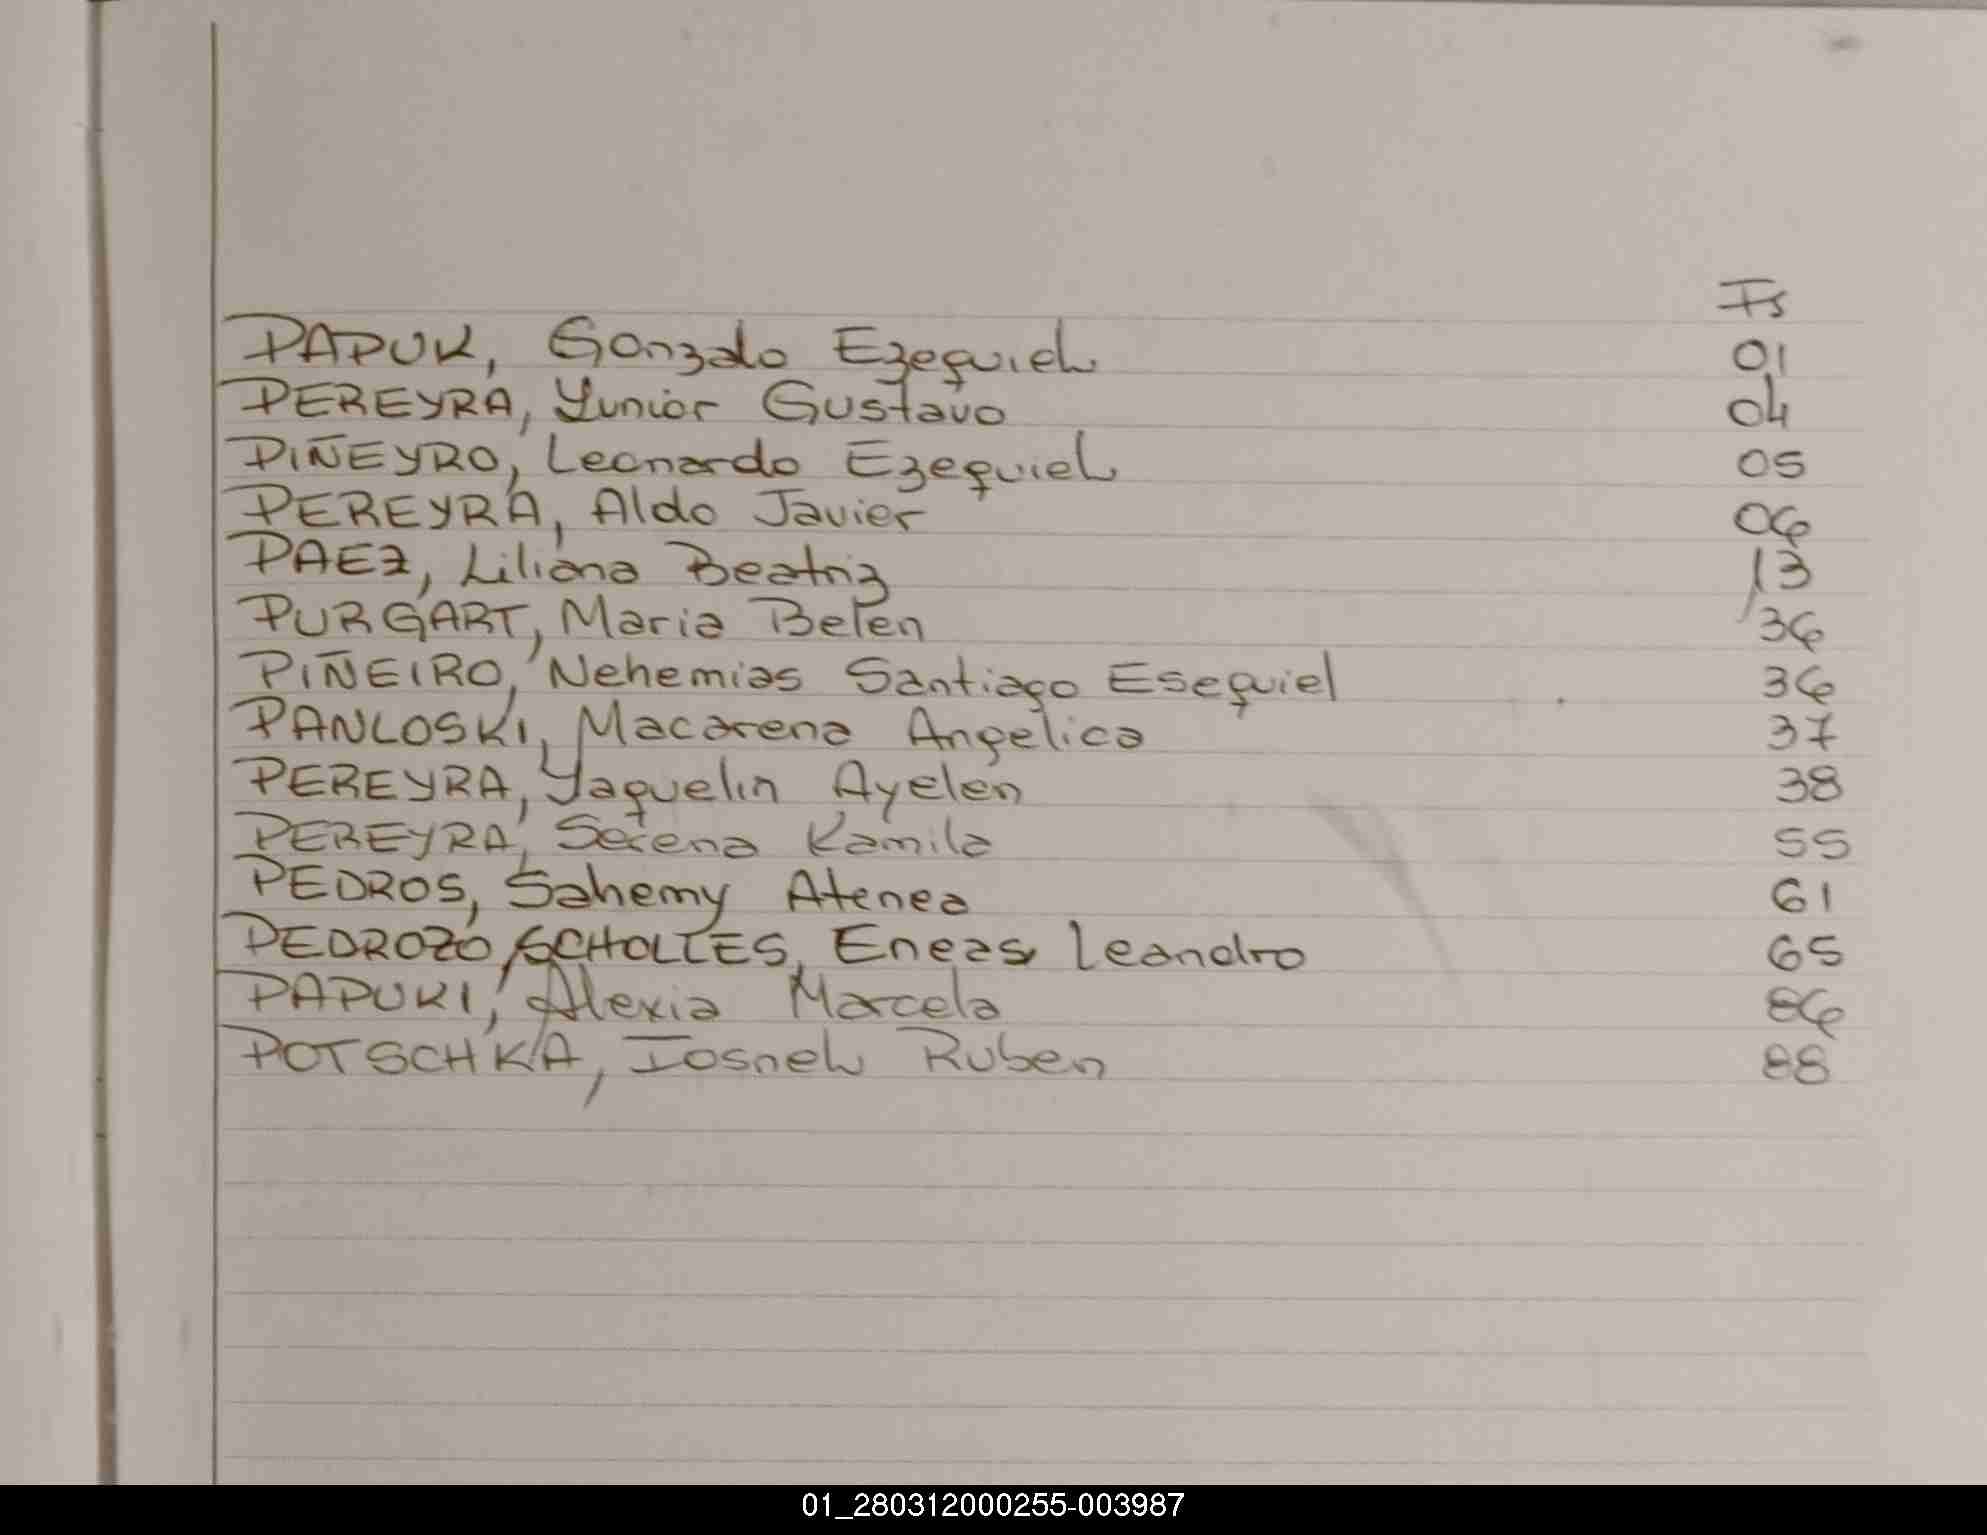 Fs
PAPUK, Gonzalo Ezequiel 01
PEREYRA, Yunior Gustavo 04
PIÑEYRO, Leonardo Ezequiel 05
PEREYRA, Aldo Javier 06
PAEZ, Liliana Beatriz 13
PURGART, Maria Belen 36
PIÑEIRO, Nehemias Santiago Esequiel 36
PANLOSKI, Macarena Angelica 37
PEREYRA, Yaquelin Ayelen 38
PEREYRA, Serena Kamila 55
PEDROS, Sahemy Atenea 61
PEDROZO SCHOLLES, Eneas Leandro 65
PAPUKI, Alexia Marcela 86
POTSCHKA, Iosnel Ruben 88
01_280312000255-003987